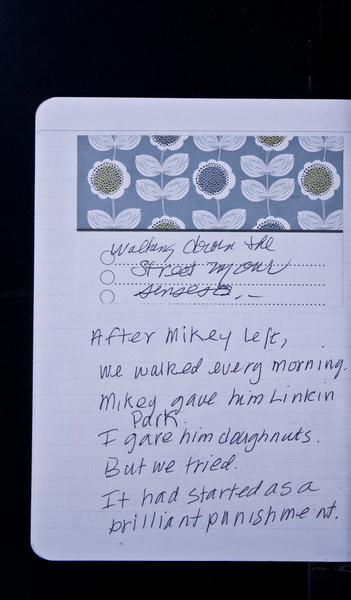 Walking down the
Street my our
senses
After Mikey left,
we walked every morning.
Mikey gave him Linkin
Park.
I gave him doughnuts.
But we tried.
It had started as a
brilliant punishment.